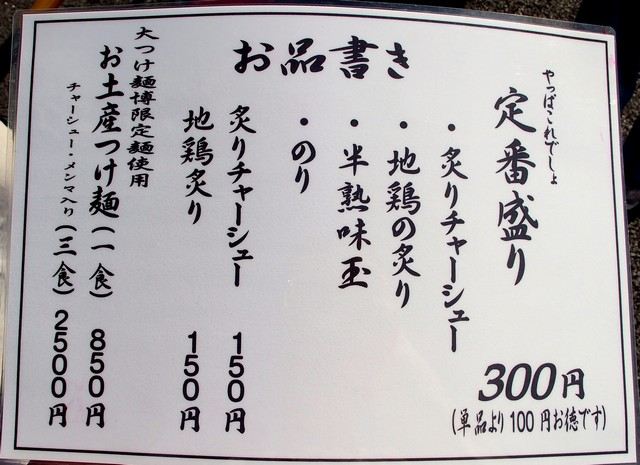 お品書き
やっぱこれでしょ
定番盛り
・炙りチャーシュー
・地鶏の炙り
・半熟味玉
・のり
300円
(単品より100円お徳です)
炙りチャーシュー 150円
地鶏炙り 150円
大つけ麺博限定麺使用
お土産つけ麺(一食) 850円
チャーシュー・メンマ入り(三食) 2500円